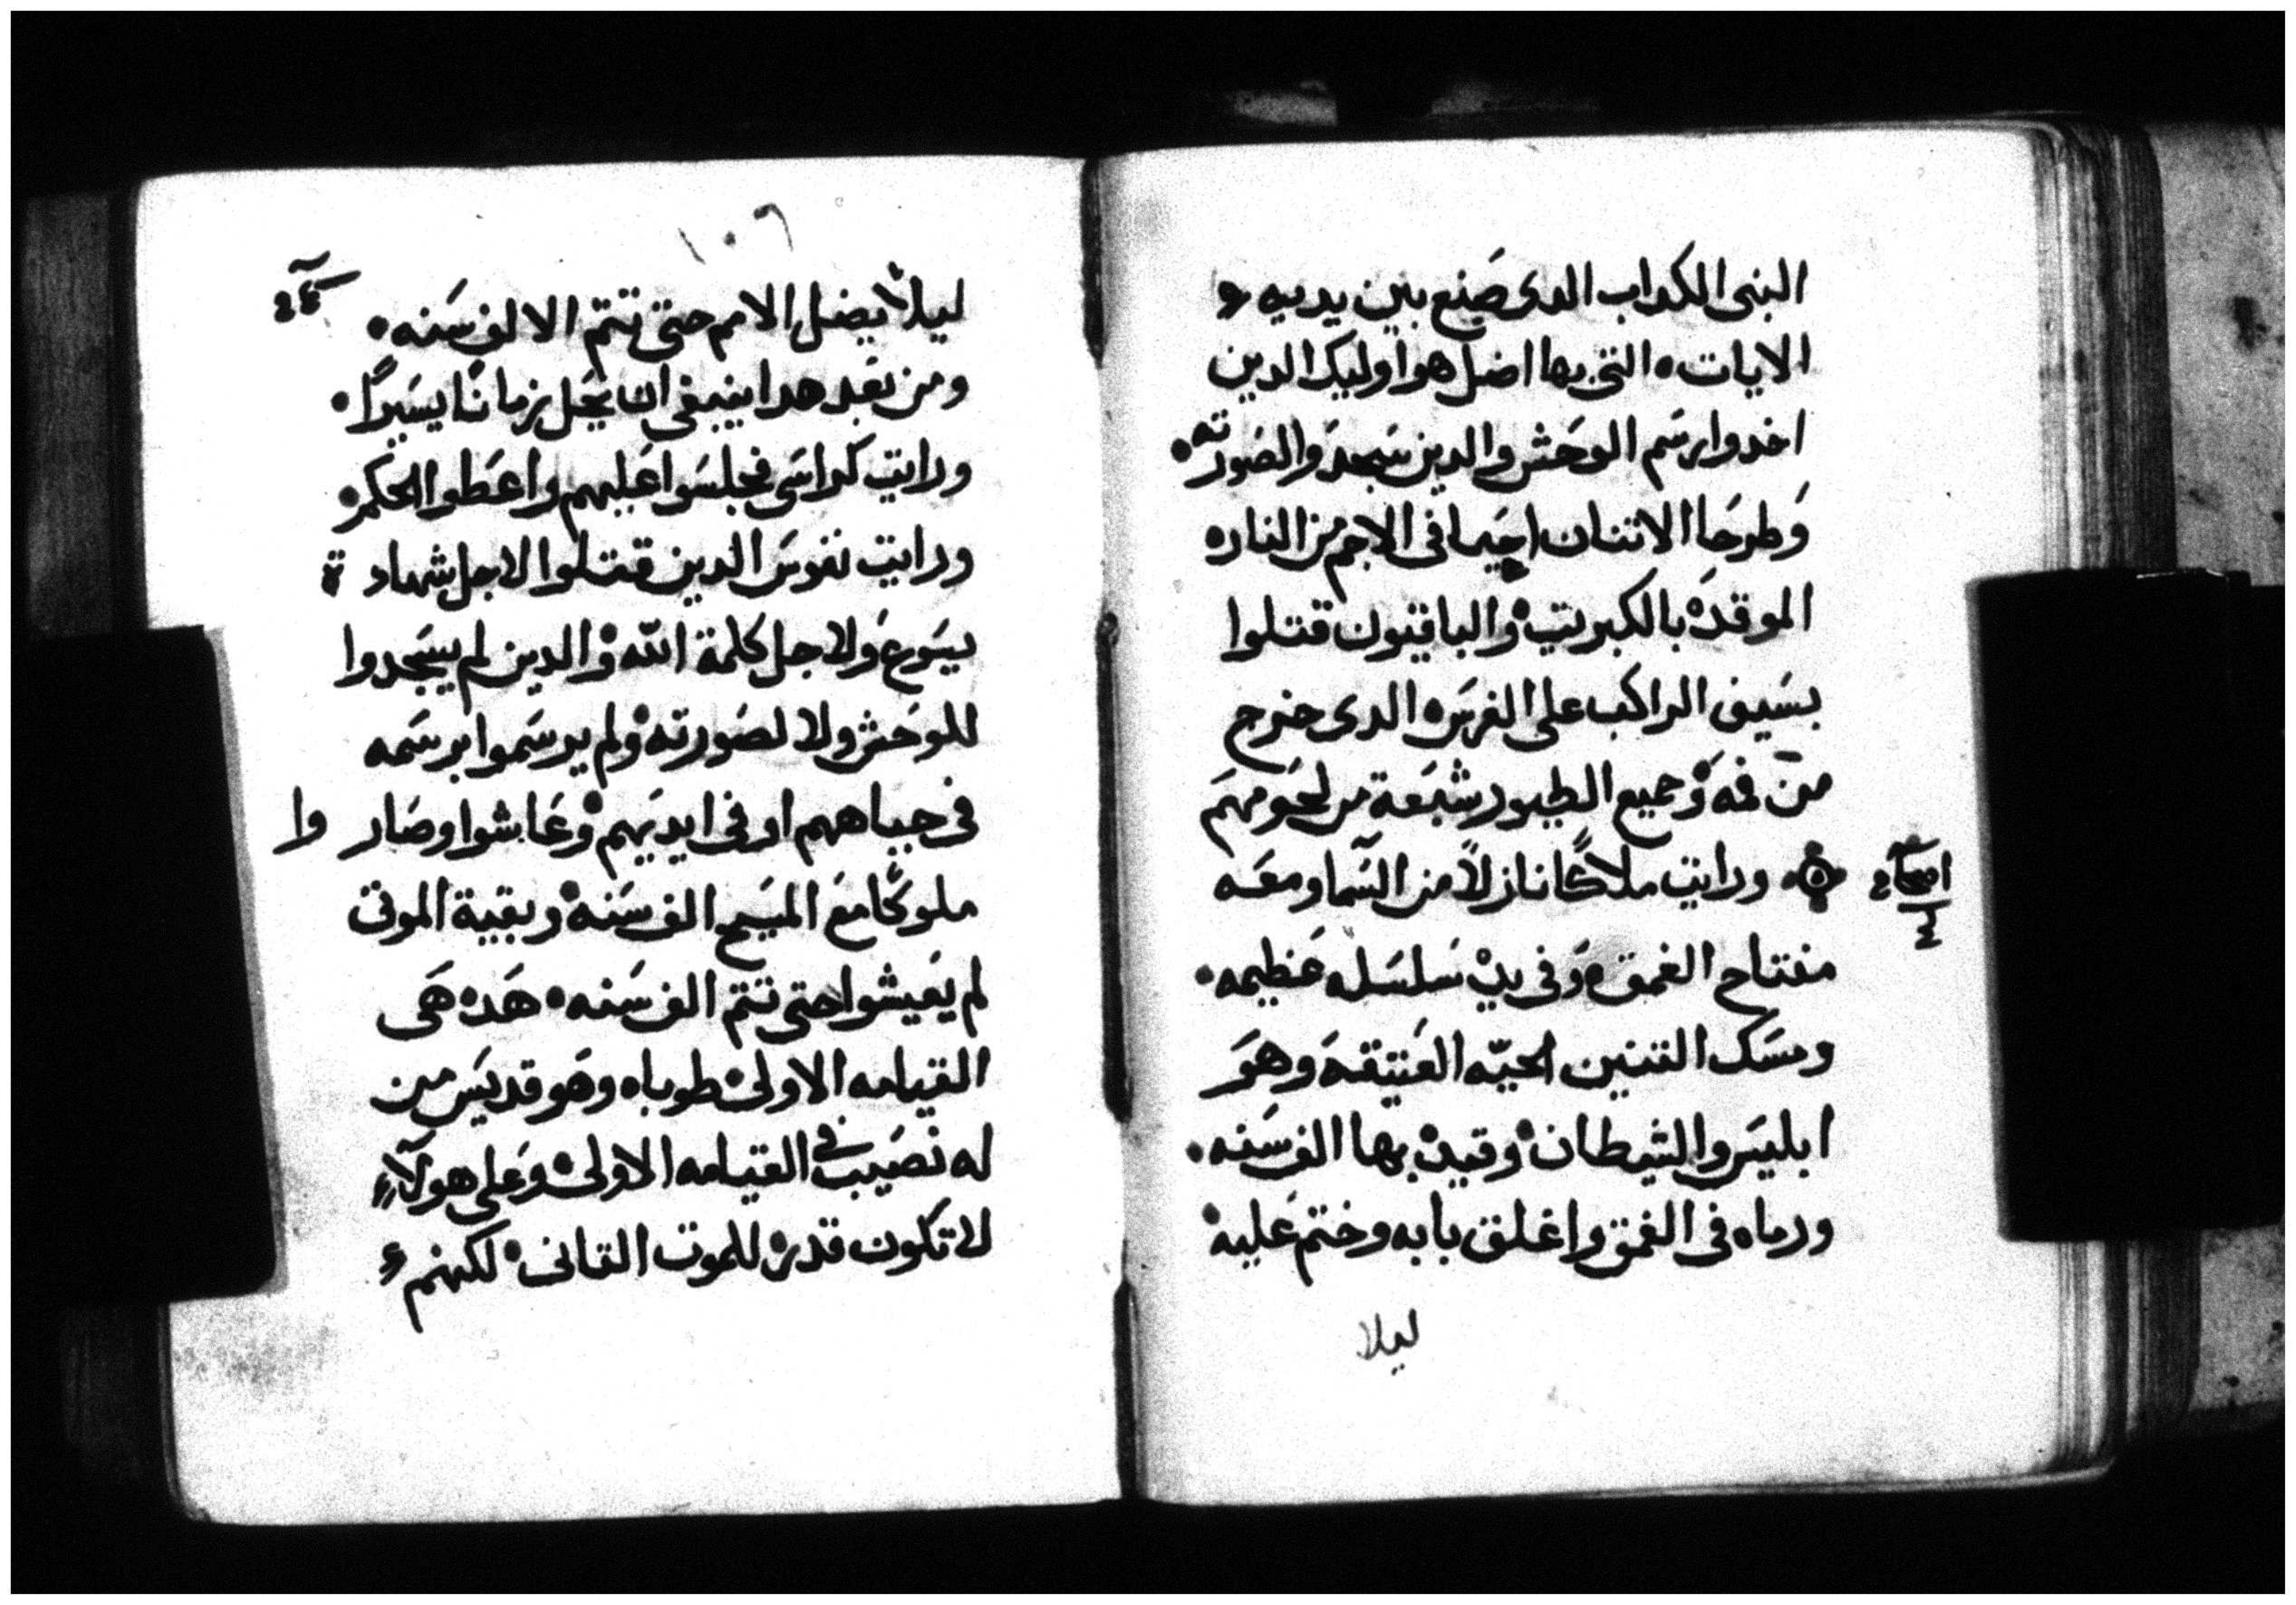 البنى الكداب الدى صنع بين يديه
الايات التى بها اضل هو اوليك الدين
اخدوا رسم الوحش والدين سجدوا لصورته
وطرحا الاتنان احيا فى الاجم من النار
الموقده بالكبريت والباقيون قتلوا
بسيف الراكب على الفرس الدى خرج
من فمه وجميع الطيور شبعة من لحومهم
ورايت ملاكًا نازلًا من السما ومعه
مفتاح الغمق وفى يده سلسله عظيمه
ومسك التنين الحيه العتيقه وهو
ابليس والشيطان وقيده بها الف سنه
ورماه فى الغمق واغلق بابه وختم عليه
ليلا
١٠٦
ليلا يضل الامم حتى تتم الالف سنه
ومن بعد هدا ينبغى ان يحل زمانًا يسيرًا
ورايت كراسى فجلسوا عليهم واعطوا الحكم
ورايت نفوس الدين قتلوا لاجل شهادة
يسوع ولاجل كلمة الله والدين لم يسجدوا
للوحش ولا لصورته ولم يرسموا برسمه
فى جباههم او فى ايديهم وعاشوا وصاروا
ملوكًا مع المسيح الف سنه وبقية الموتى
لم يعيشوا حتى تتم الف سنه هده هى
القيامه الاولى طوباه وهو قديس من
له نصيب فى القيامه الاولى وعلى هولآء
لا تكون قدره للموت التانى لكنهم